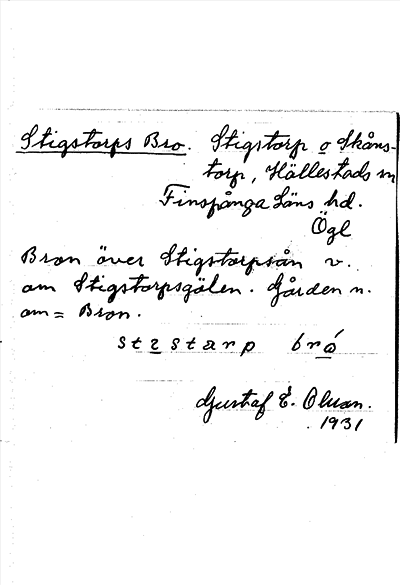 Stigstorps Bro. Stigstorp o Skåns-
torp, Hällestads sn
Finspånga Läns hd.
Ögl
Bron över Stigstorpsån v.
om Stigstorpsgölen. Gården n.
om = Bron.
stistarp bro
Gustaf E. Olsson.
1931